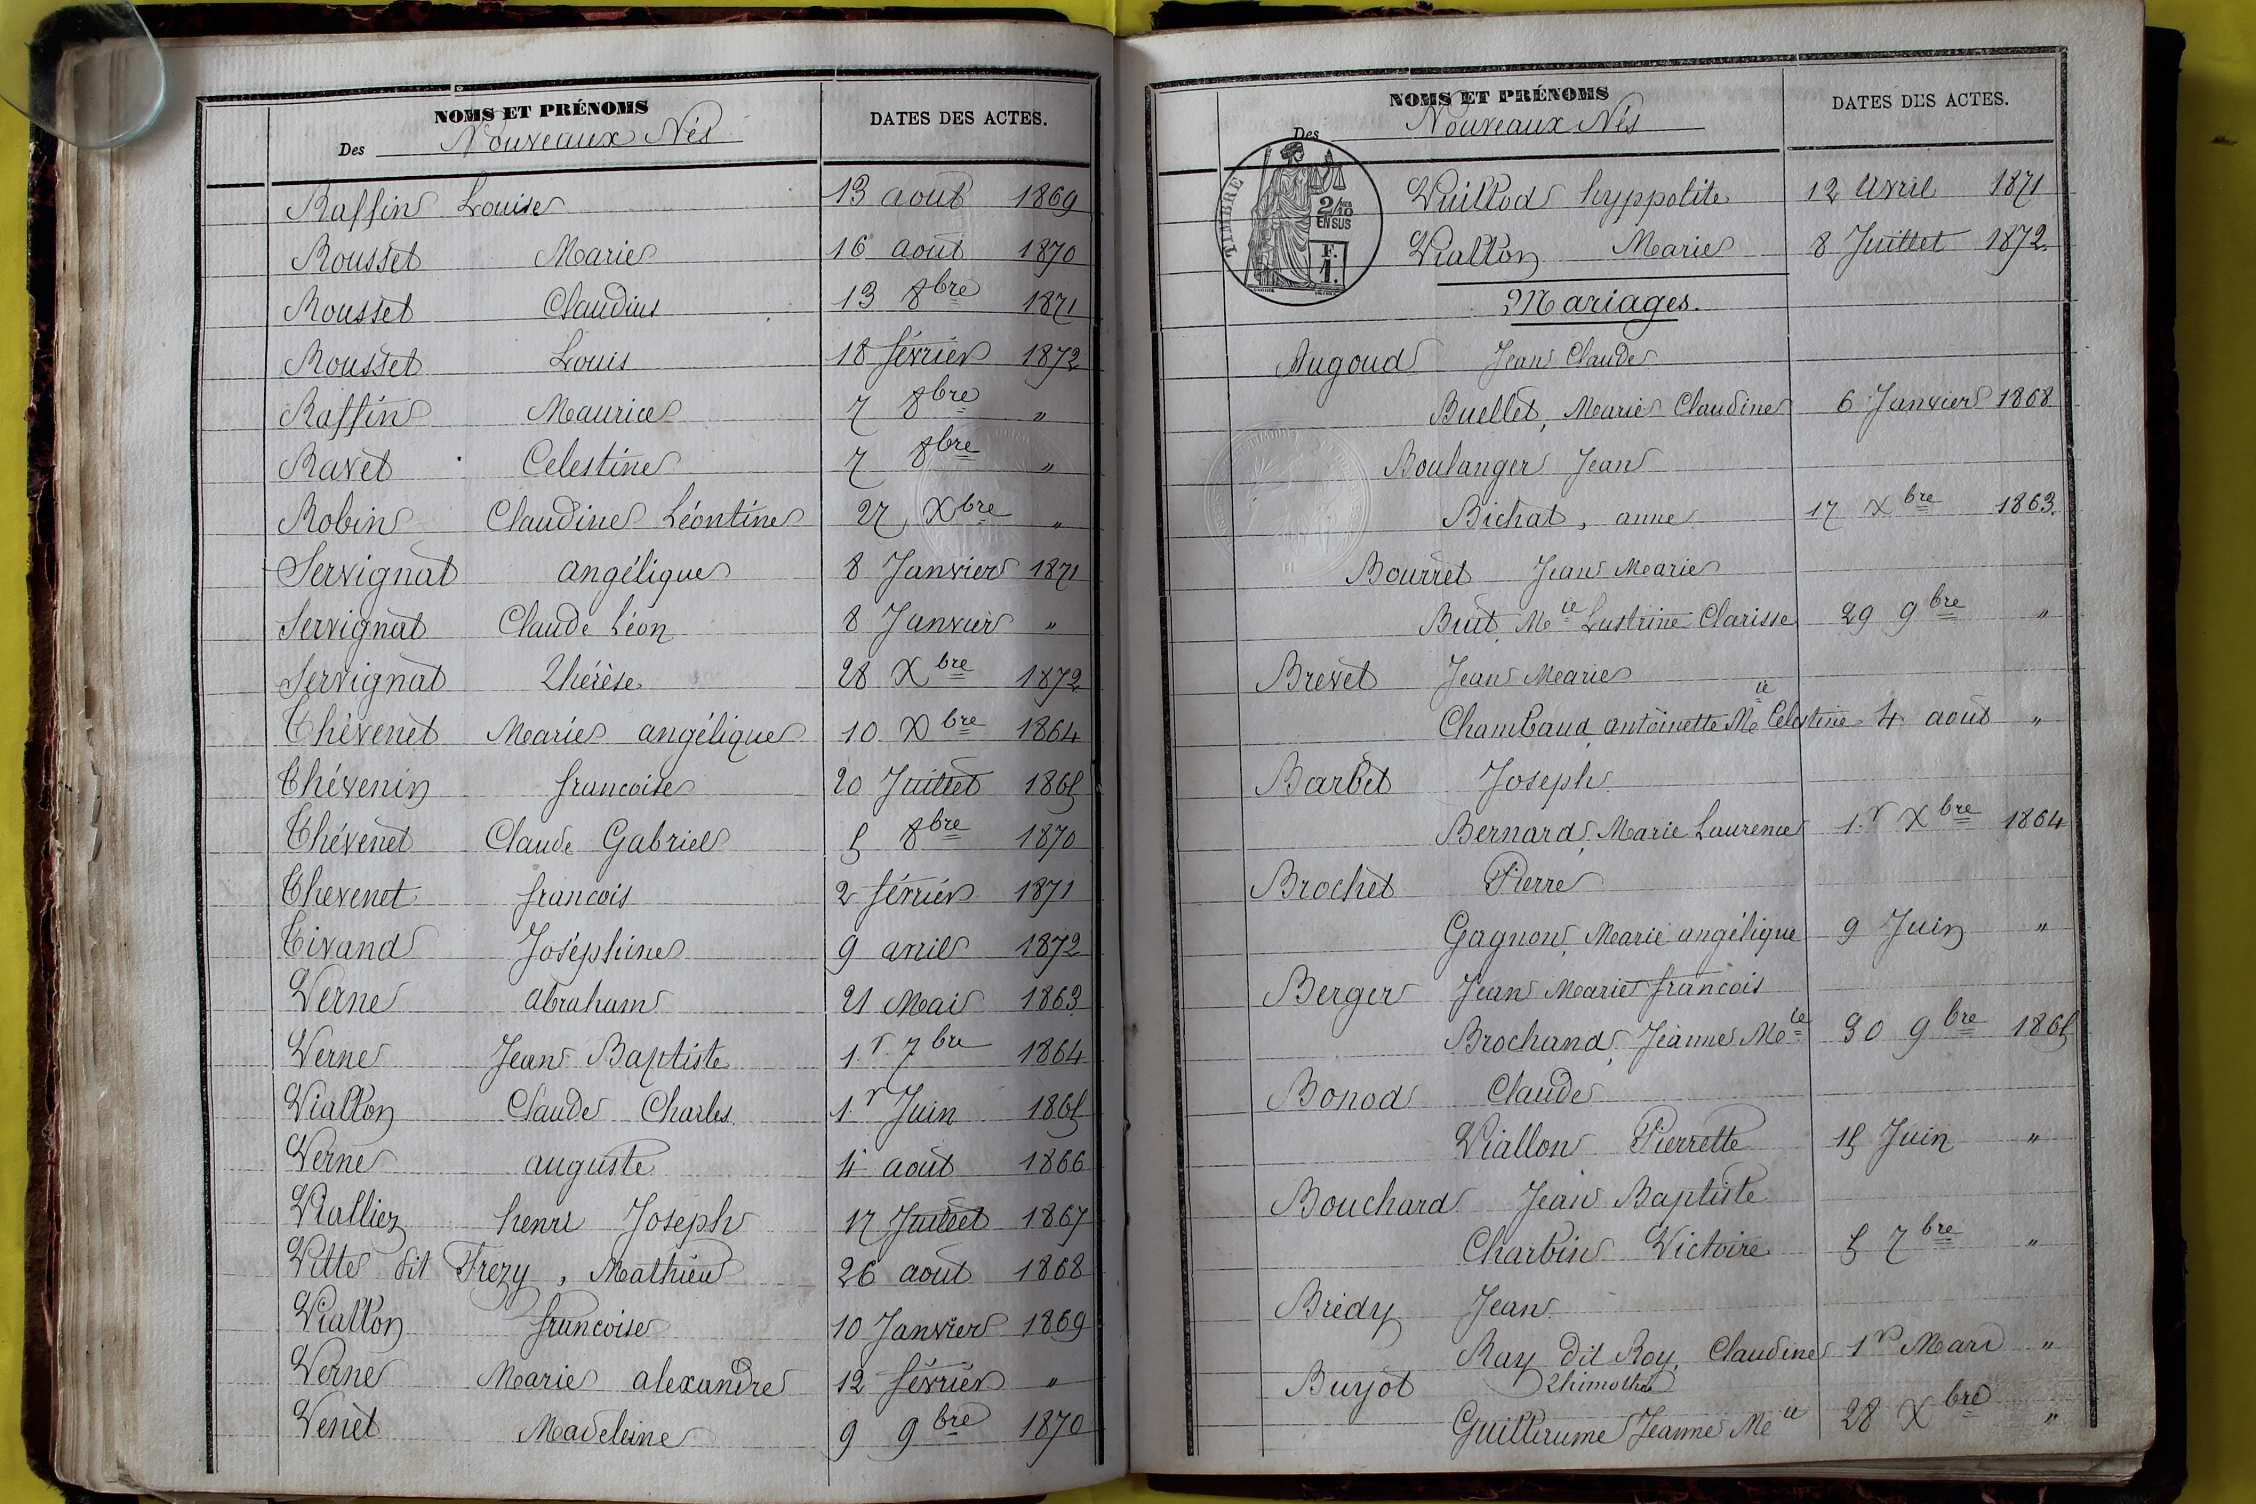 NOMS ET PRÉNOMS
Des Nouveaux Nés
DATES DES ACTES.
Raffin Louise 13 aout 1869
Rousset Marie 16 aout 1870
Rousset Claudius 13 8bre 1871
Rousset Louis 18 février 1872
Raffin Maurice 7 8bre "
Ravet Celestine 7 8bre "
Robin Claudine Léontine 27 Xbre "
Servignat angélique 8 Janvier 1871
Servignat Claude Léon 8 Janvier "
Servignat Thérèse 28 Xbre 1872
Thévenet Marie angélique 10 Xbre 1864
Thévenin francoise 20 Juillet 1865
Thévenet Claude Gabriel 5 8bre 1870
Thevenet francois 2 février 1871
Tivand Joséphine 9 avril 1872
Verne abraham 21 Mai 1863
Verne Jean Baptiste 1.r 7bre 1864
Viallon Claude Charles 1r Juin 1865
Verne auguste 4 aout 1866
Vialliez henri Joseph 17 Juillet 1867
Vitte dit Frezy, Mathieu 26 aout 1868
Viallon francoise 10 Janvier 1869
Verne Marie alexandre 12 février "
Venet Madeleine 9 9bre 1870
NOMS ET PRÉNOMS
Des Nouveaux Nés
DATES DES ACTES.
TIMBRE
2/10 EN SUS
F. 1.
Vuillod hyppolite 12 avril 1871
Viallon Marie 8 Juillet 1872.
Mariages.
Augoud Jean Claude
Buellet, Marie Claudine 6 Janvier 1868
Boulanger Jean
Bichat, anne 17 Xbre 1863.
Bourret Jean Marie
Buit, Mcie Lustrine Clarisse 29 9bre "
Brevet Jean Marie
Chambaud antoinette Mcie Celestine 4 août "
Barbet Joseph
Bernard, Marie Laurence 1.r Xbre 1864
Brochet Pierre
Gagnon, Marie angélique 9 Juin "
Berger Jean Marie francois
Brochand, Jeanne Mcie 30 9bre 1865
Bonod Claude
Viallon Pierrette 15 Juin "
Bouchard Jean Baptiste
Charbin Victoire 5 7bre "
Brédy Jean
Ray dit Roy, Claudine 1r Mars "
Buyot Thimothé
Guillerume Jeanne Mcie 28 Xbre "